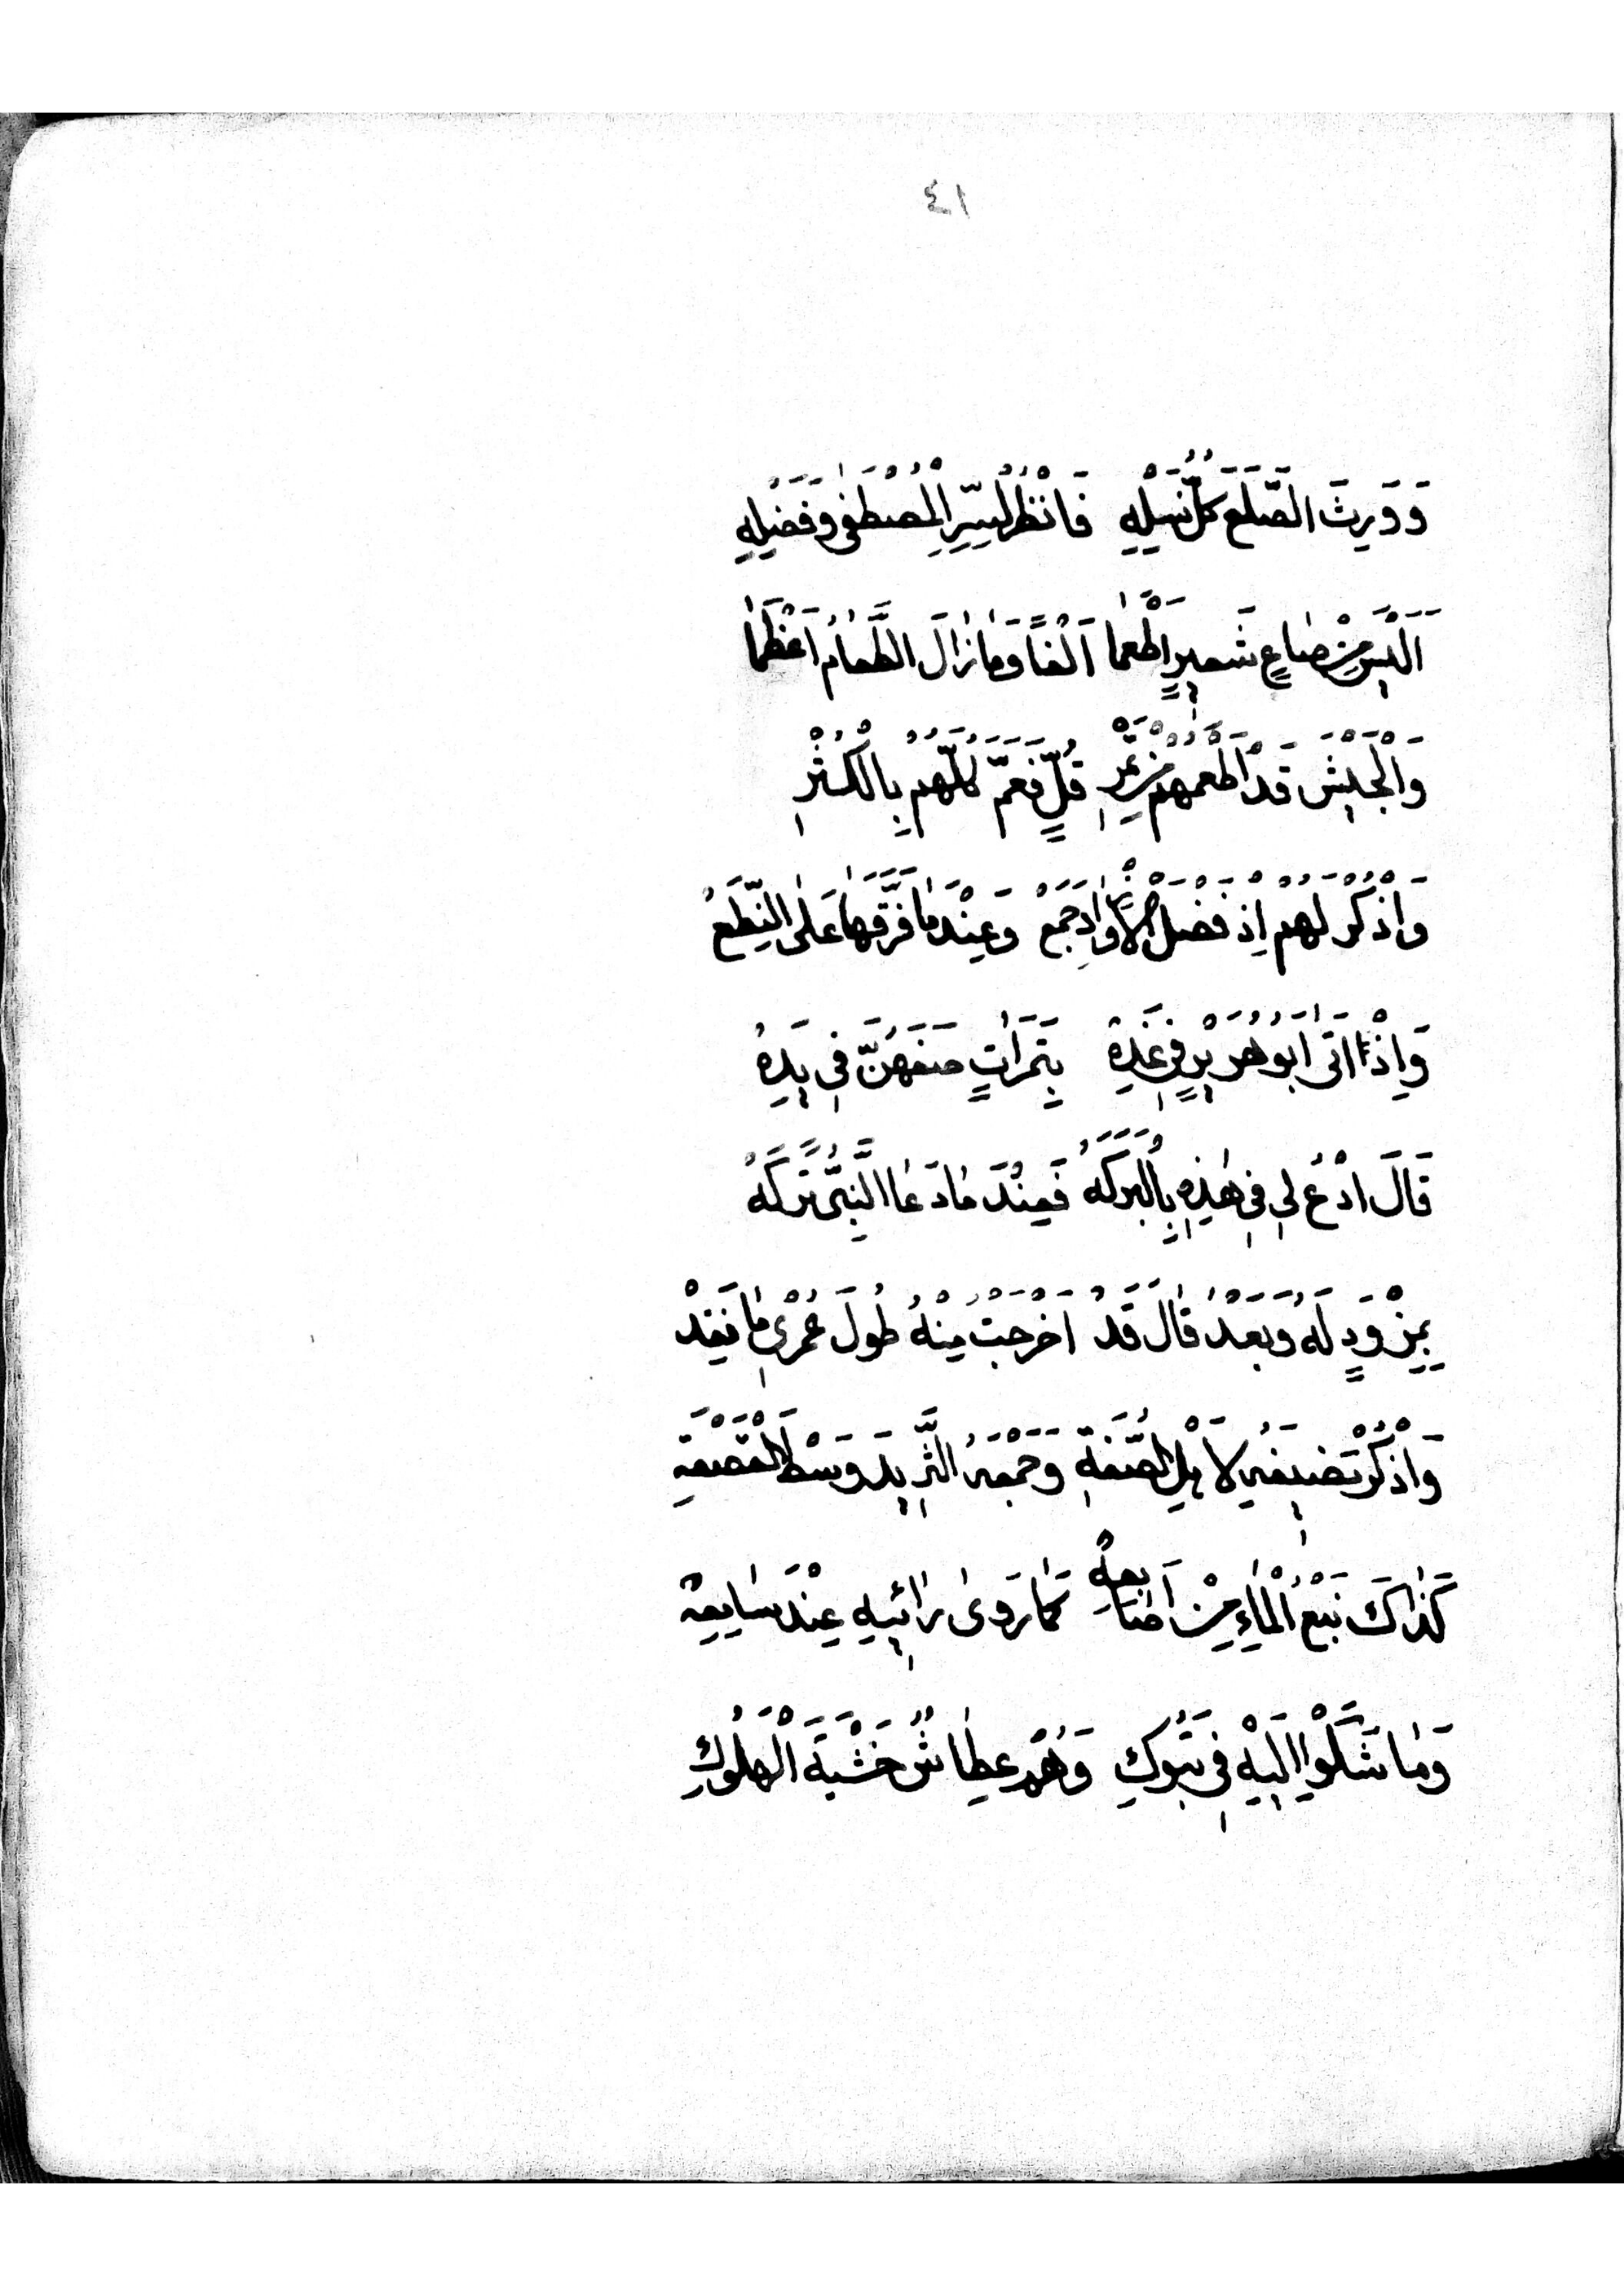 ٤١
وَوَرِثَ الصَّلَعَ كُلُّ نَسْلِهِ فَانْظُرْ لِسِرِّ الْمُصْطَفٰى وَفَضْلِهِ
اَلَيْسَ مِنْ صَاعِ شَعِيرٍ اَطْعَمَا اَلْفًا وَمَا زَالَ الطَّعَامُ اَعْظَمَا
وَالْجَيْشَ قَدْ اَطْعَمَهُمْ مِنْ تَمْرِ قُلٍّ فَعَمَّ كُلَّهُمْ بِالْكُثْرِ
وَاذْكُرْ لَهُمْ اِذْ فَضْلَ الْاَزْوَادِ جَمَعْ وَعِنْدَمَا فَرَّقَهَا عَلَى النِّطَعْ
وَاِذْ اَتٰى اَبُو هُرَيْرٍ فِي غَدِهْ بِتَمَرَاتٍ صَفَّهُنَّ فِي يَدِهْ
قَالَ ادْعُ لِي فِي هٰذِهِ بِالْبَرَكَهْ فَعِنْدَ مَا دَعَا النَّبِيُّ تَرَكَهْ
بِمِزْوَدٍ لَهُ وَبَعْدُ قَالَ قَدْ اَخْرَجْتُ مِنْهُ طُولَ عُمْرِي مَا نَفِدْ
وَاذْكُرْ تَضْيِيفَهُ لِاَهْلِ الصُّفَّةِ وَجَمْعَهُ الثَّرِيدَ وَسْطَ الْقَصْعَةِ
كَذَاكَ نَبْعُ الْمَاءِ مِنْ اَصَابِعِهْ كَمَا رَوٰى رَائِيهِ عِنْدَ سَامِعِهْ
وَمَا شَكَوْا اِلَيْهِ فِي تَبُوكِ وَهُمْ عِطَاشٌ خَشْيَةَ الْهُلُوكِ